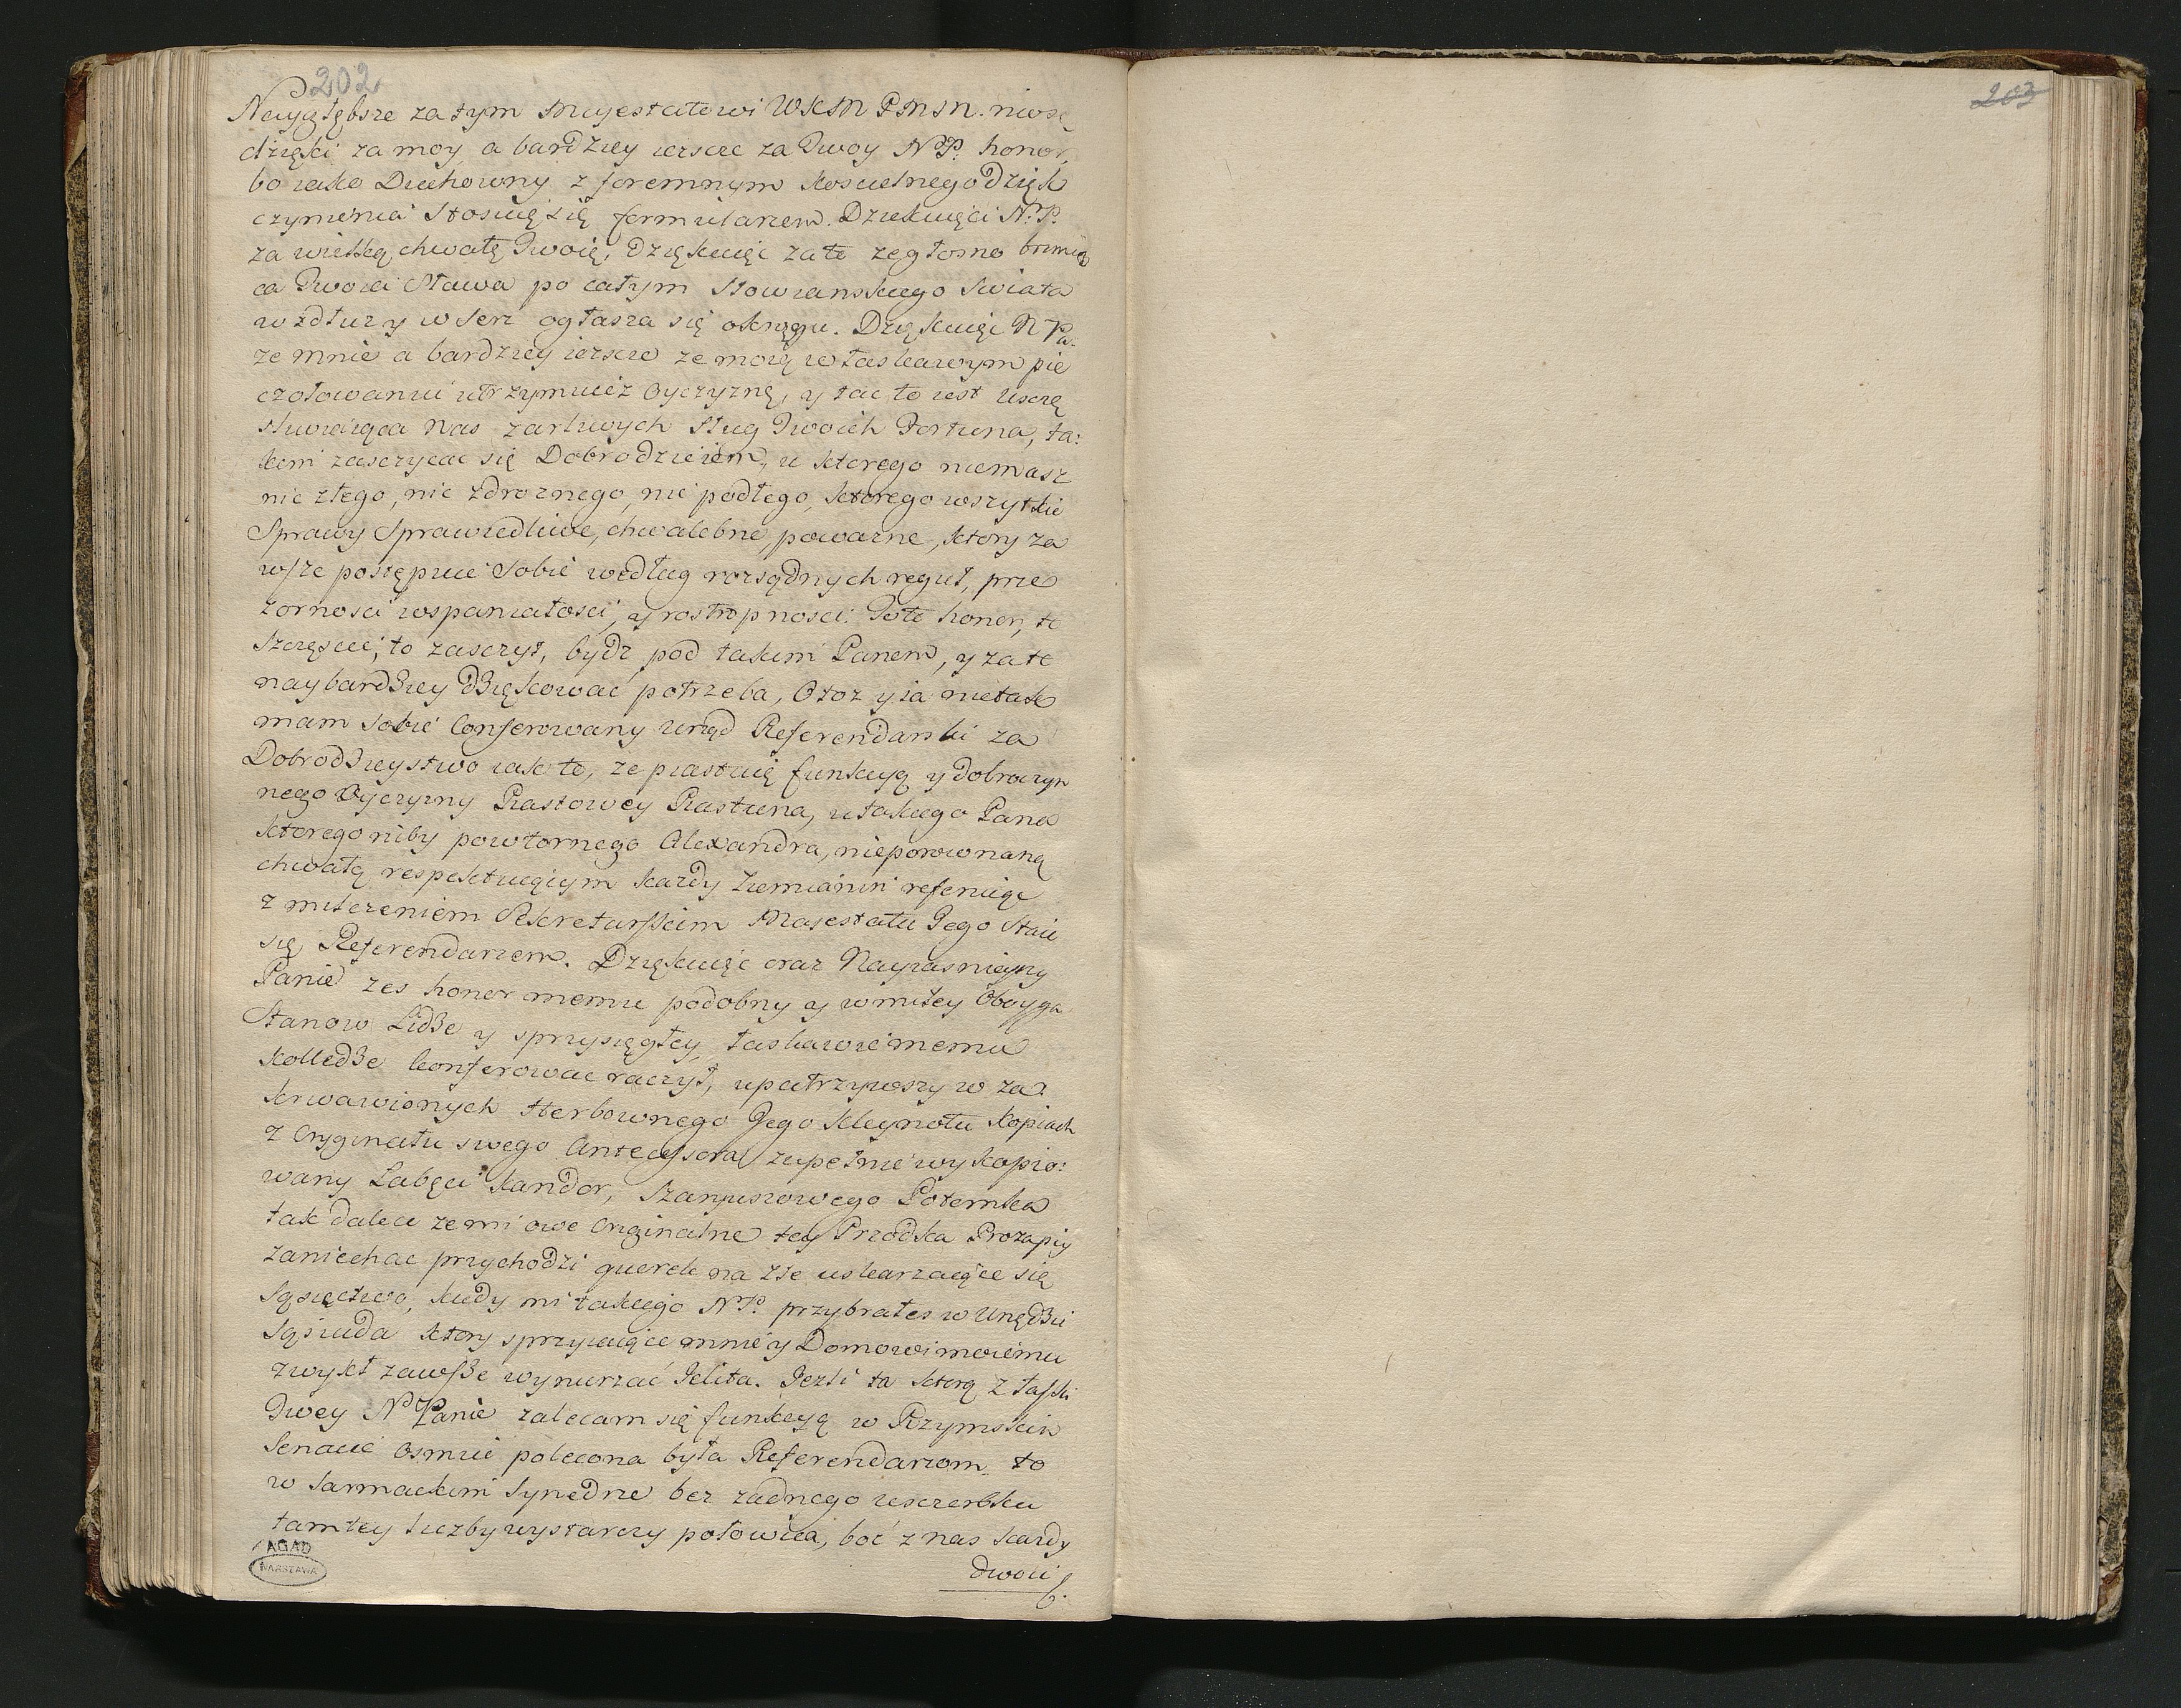 202
Naygłębsze za tym Majestatowi WKM PNSM. niosę
dzięki za moy a bardziey ieszcze za Twoy N.P. honor,
bo iako Duchowny z foremnym koscielnego dzięk
czynienia stosuię się formularzem. Dziekuięci N.P.
za wielką chwałę Twoię, dziękuięć za to ze głosno brmią
ca Twoia Sława po całym Słowianskiego swiata
wzdłuz y wserz ogłasza się okręgu. Dziękuięć N Pa.
ze mnie a bardziey ieszcze ze moię w łaskawym pie
czołowaniu utrzymuiesz Oyczyznę, y tac to iest uszczę
sliwiaiąca nas zarliwych sług Twoich Fortuna, ta:
kiem zasczycac się Dobrodzieiem, u ktorego niemasz
nic złego, nic zdroznego, nic podłego, ktorego wszytkie
Sprawy Sprawiedliwe, chwalebne, powazne, ktory za
wsze postępuie sobie według rozsądnych reguł, prze
zornosci wspaniałosci, y rostropnosci. To to honor, to
szczęscie, to zasczyt, bydz pod takim Panem, y za to
naybardziey dziękowac potrzeba, Otoz y ia nie tak
mam sobie conferowany urząd Referendarski za
Dobrodzieystwo iak to, ze piastuię funkcyą y dobroczyn
nego Oyczyzny Piastowey Piastuna, u takiego Pana
ktorego niby powtornego Alexandra, nieporownaną
chwałą respektuiącym kazdy Ziemianin referuiąc
z milczeniem Sekretarskim Majestatu Jego staie
się Referendarzem. Dziękuięć oraz Nayiasnieyszy
Panie zes honor memu podobny y w miłey Oboyga
Stanow Lidze y sprzysięgłey łaskawie memu
Kolledze konferowac raczył, upatrzywszy w za:
krwawionych Herbownego Jego Kleynotu Kopiach
z Oryginału swego Antecessora zupełnie wykopio:
wany Łabęci Kandor, Szanyuszowego Potomka
tak dalece ze mi owe Originalne tey Przodka Prozapiy
zaniechac przychodzi querele na złe uskarzaiące się
sąsiectwo, kiedy mi takiego N.P. przybrałes w Urzędzie
sąsiada ktory sprzyiaiące mnie y Domowi moiemu
zwykł zawsze wynurzać Jelita. Jezli ta ktorą z łaski
Twey N Panie zalecam się funkcyą w Rzymskim
Senacie osmiu polecona była Referendarzom to
w Sarmackim Synedrze bez zadnego uszczerbku
tamtey liczby wystarczy połowica, boć z nas kazdy
dwoii
AGAD
WARSZAWA
203